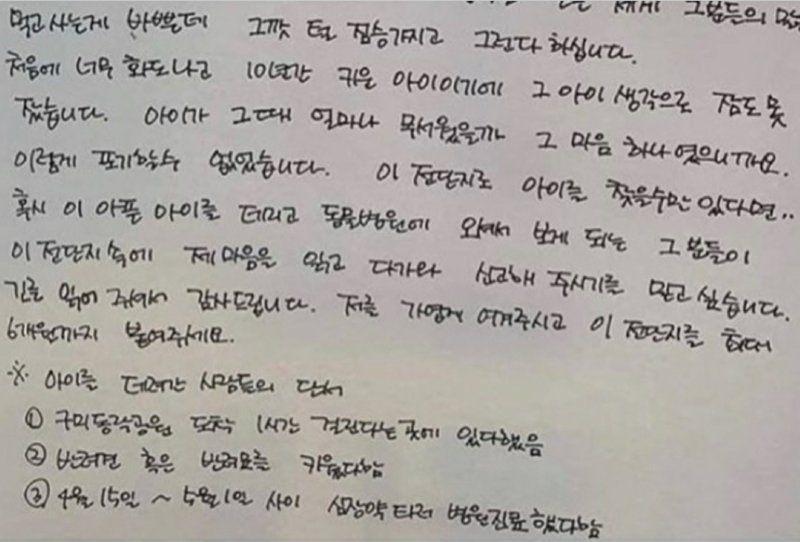 세게 그분들의
먹고사는게 바쁜데 그깟 털 짐승가지고 그런다 하십니다.
처음에 너무 화도나고 10년간 키운 아이이기에 그 아이 생각으로 잠도 못
잤습니다. 아이가 그때 얼마나 무서웠을까 그 마음 하나 였으니까요.
이렇게 포기할수 없었습니다. 이 전단지로 아이를 찾을수만 있다면..
혹시 이 아픈 아이를 데리고 동물병원에 와서 보게 되는 그 분들이
이 전단지 속에 제 마음을 읽고 다가와 신고해 주시기를 믿고 싶습니다.
긴글 읽어 주셔서 감사드립니다. 저를 가엽게 여겨주시고 이 전단지를 최대
6개월까지 붙여주세요.
※ 아이를 데려간 사람들의 단서
① 구미동각공원 도착 1시간 걸린다는곳에 있다했음
② 반려견 혹은 반려묘를 키웠다함
③ 4월 15일 ~ 5월 1일 사이 심장약 타러 병원진료 했다함